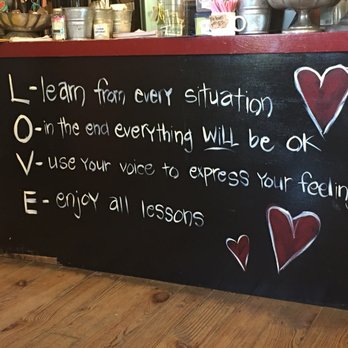 L - learn from every situation
O - in the end everything WILL be OK
V - use your voice to express your feeling
E - enjoy all lessons